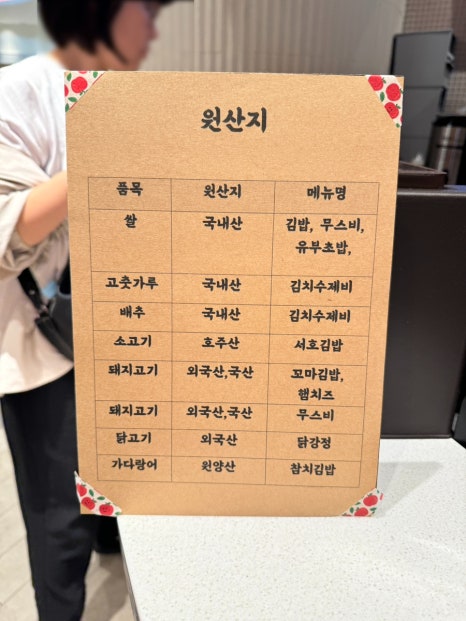 원산지
품목 원산지 메뉴명
쌀 국내산 김밥, 무스비,
유부초밥,
고춧가루 국내산 김치수제비
배추 국내산 김치수제비
소고기 호주산 서호김밥
돼지고기 외국산,국산 꼬마김밥,
햄치즈
돼지고기 외국산,국산 무스비
닭고기 외국산 닭강정
가다랑어 원양산 참치김밥